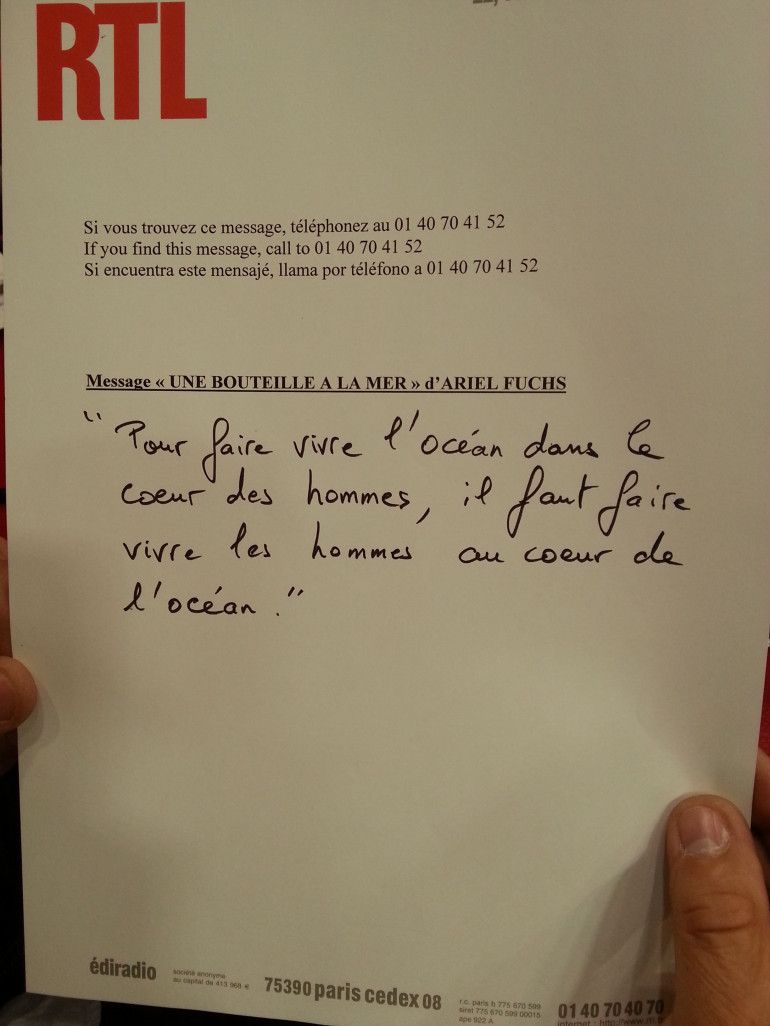 RTL
Si vous trouvez ce message, téléphonez au 01 40 70 41 52
If you find this message, call to 01 40 70 41 52
Si encuentra este mensajé, llama por téléfono a 01 40 70 41 52
Message « UNE BOUTEILLE A LA MER » d'ARIEL FUCHS
" Pour faire vivre l'océan dans le
coeur des hommes, il faut faire
vivre les hommes au coeur de
l'océan . "
édiradio
société anonyme
au capital de 413 908 €
75390 paris cedex 08
r.c. paris b 775 670 599
siret 775 670 599 00015
ape 922 A
01 40 70 40 70
internet : http://www.rtl.